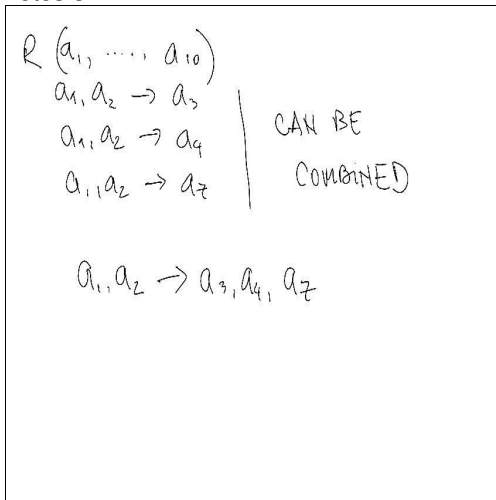 R (a1, ....., a10)
a1, a2 → a3
a1, a2 → a4
a1, a2 → a7
CAN BE
COMBINED
a1, a2 → a3, a4, a7